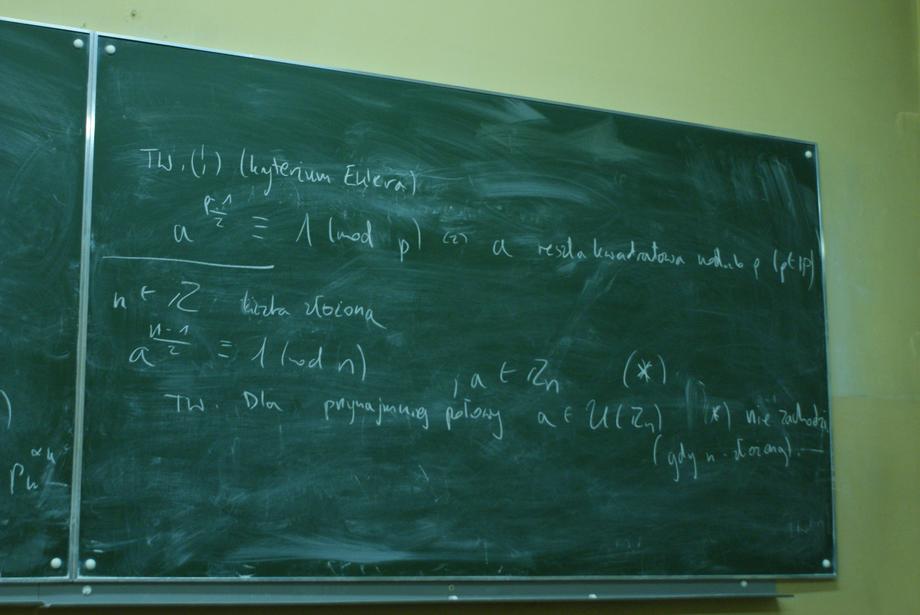 TW. (!) (kryterium Eulera)
a^{\frac{p-1}{2}} ≡ 1 (mod p) <=> a reszta kwadratowa modulo p (p ∈ IP)
n ∈ ℤ liczba złożona
a^{\frac{n-1}{2}} ≡ 1 (mod n) , a ∈ ℤ_n (*)
TW. Dla przynajmniej połowy a ∈ U(ℤ_n) (*) nie zachodzi
(gdy n - złożona).
)
p_k^{α_k}